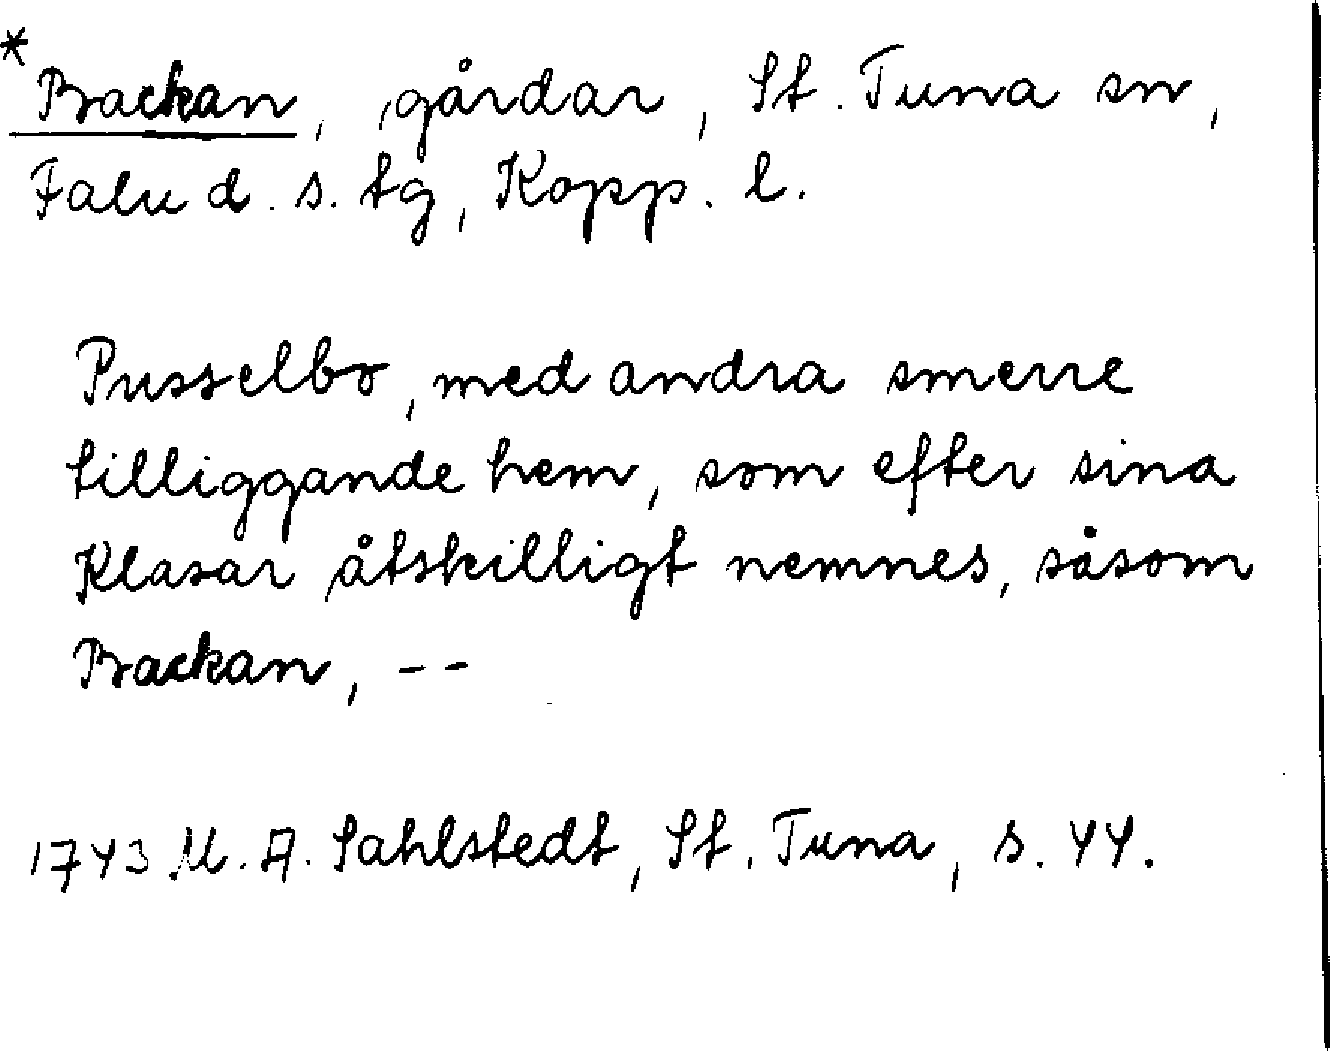 *
Backan, gårdar, St. Tuna sn,
Falu d. s. tg, Kopp. l.
Pusselbo, med andra smerre
tilliggande hem, som efter sina
Klasar åtskilligt nemnes, såsom
Backan, --
1743 M. A. Sahlstedt, St. Tuna, s. 44.